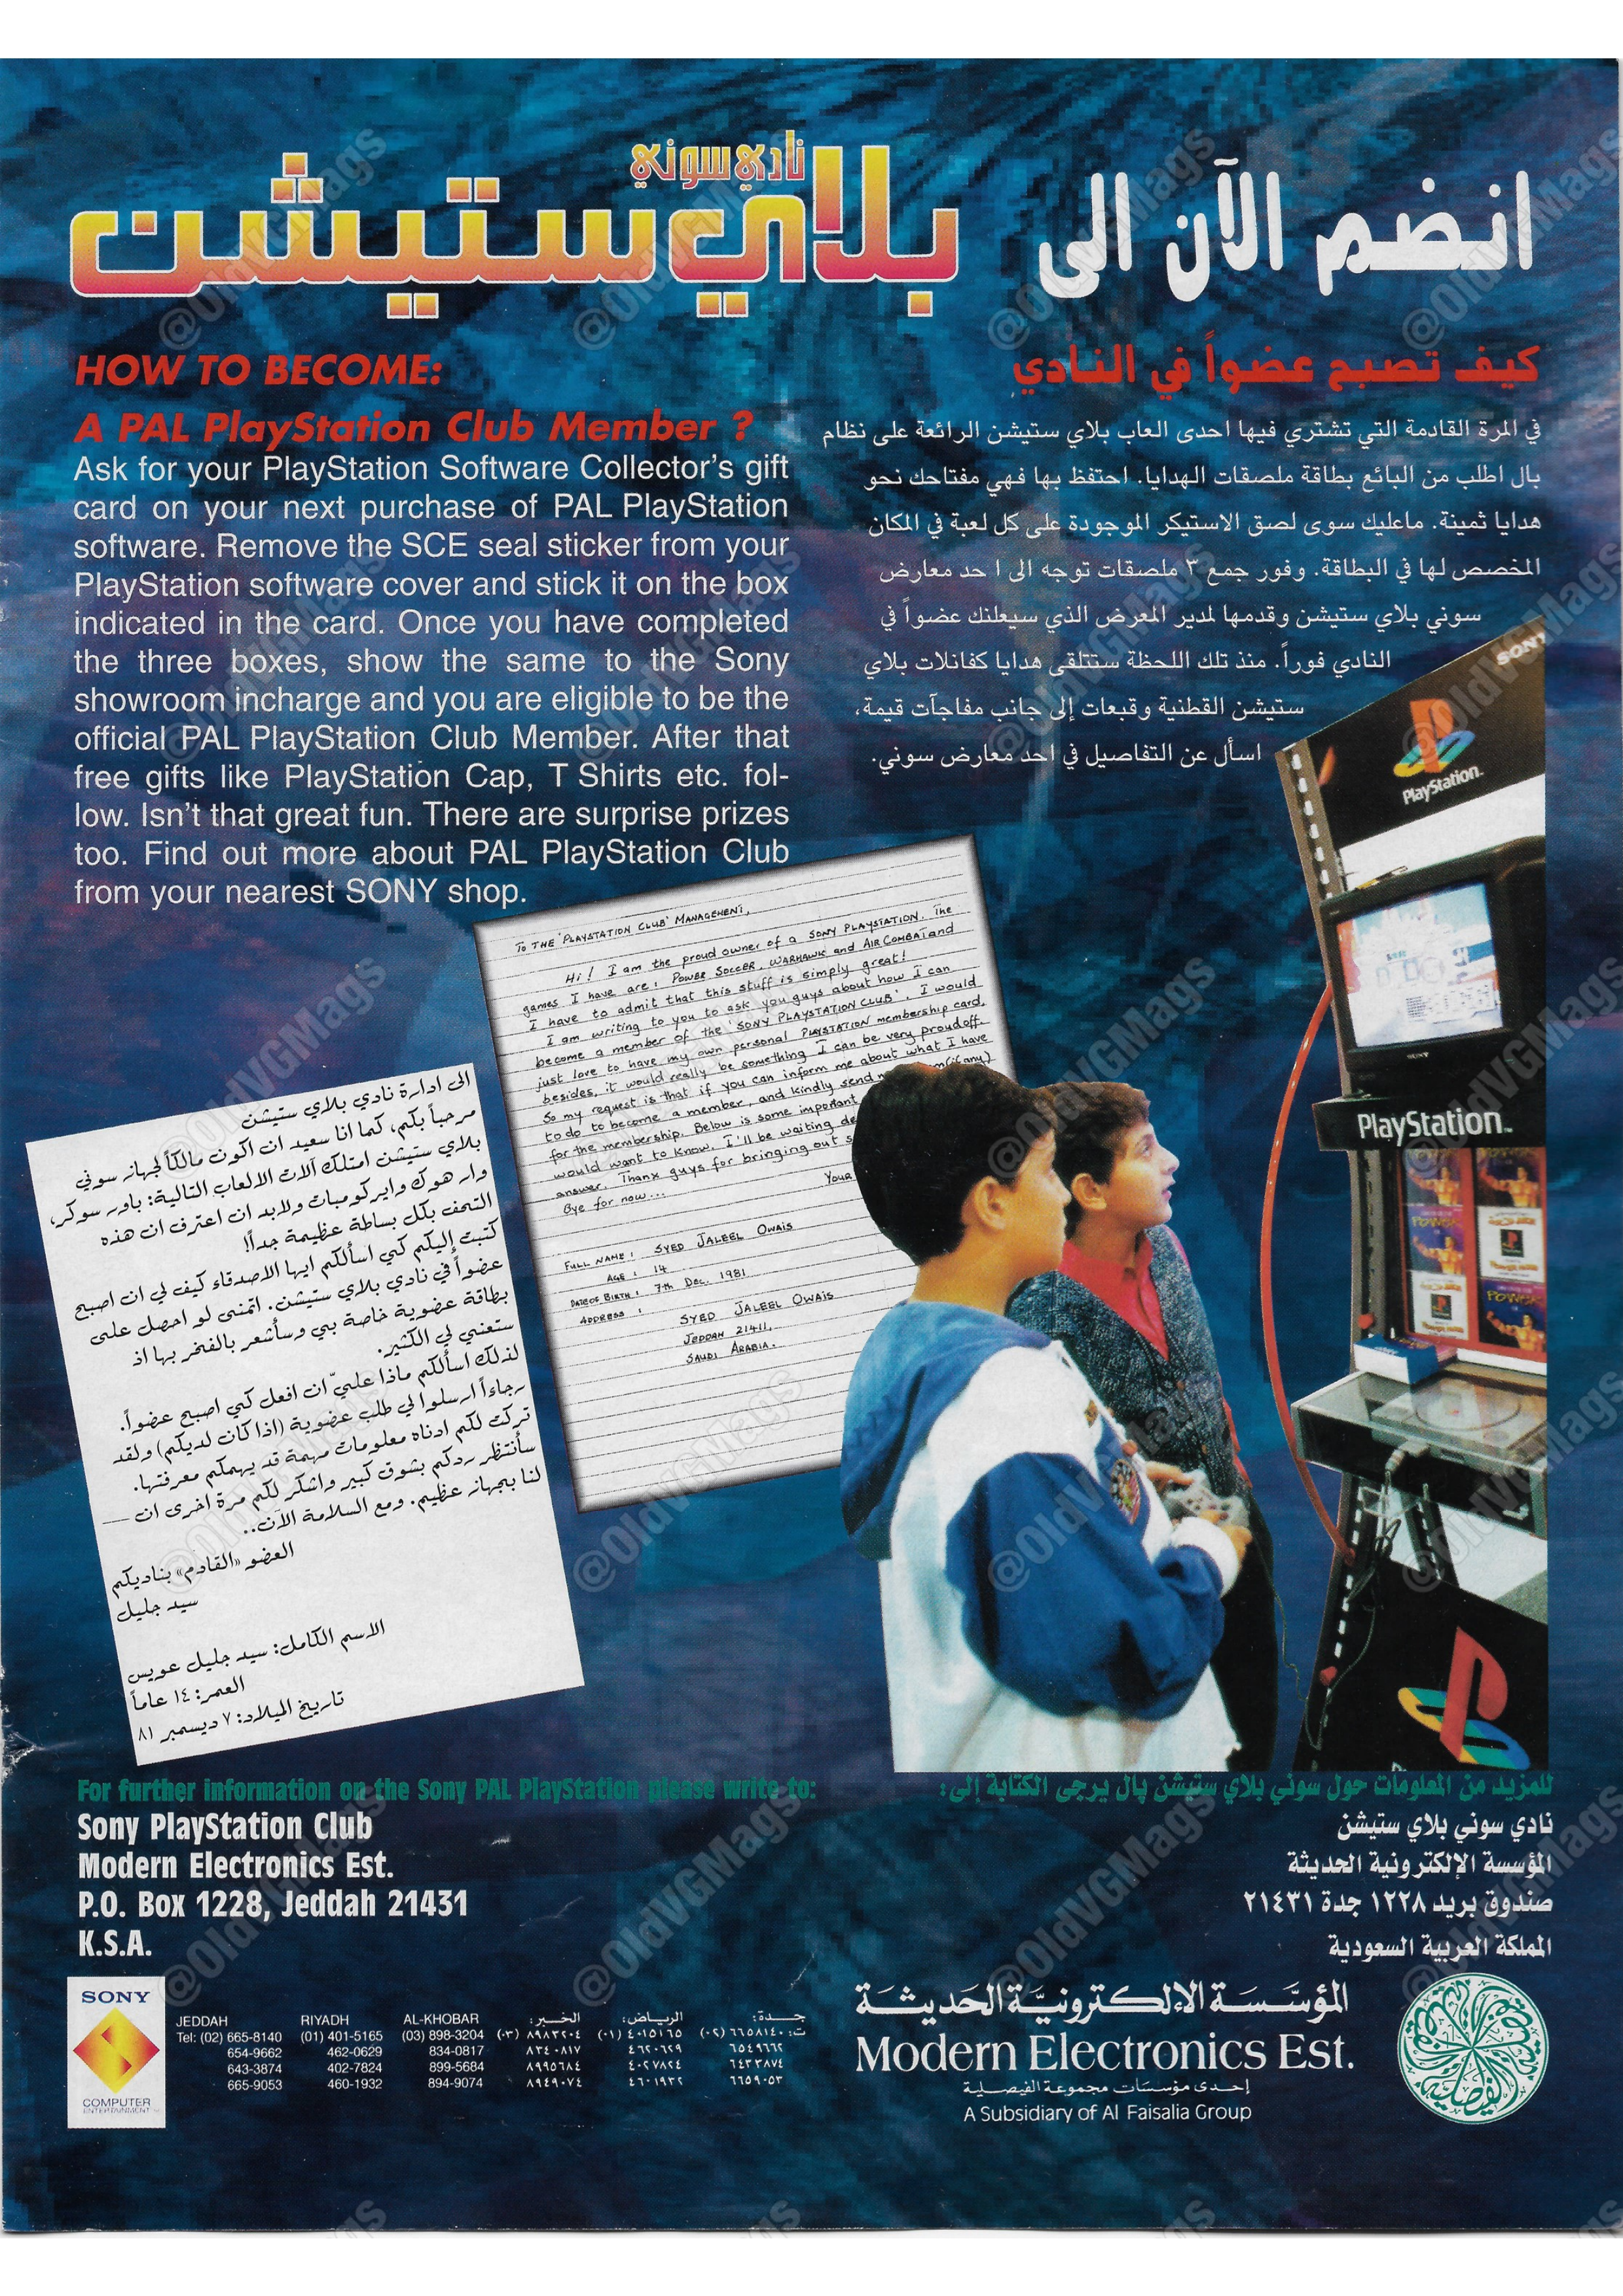 انضم الآن الى
نادي سوني
بلاي ستيشن
HOW TO BECOME:
A PAL PlayStation Club Member ?
Ask for your PlayStation Software Collector's gift
card on your next purchase of PAL PlayStation
software. Remove the SCE seal sticker from your
PlayStation software cover and stick it on the box
indicated in the card. Once you have completed
the three boxes, show the same to the Sony
showroom incharge and you are eligible to be the
official PAL PlayStation Club Member. After that
free gifts like PlayStation Cap, T Shirts etc. fol-
low. Isn't that great fun. There are surprise prizes
too. Find out more about PAL PlayStation Club
from your nearest SONY shop.
كيف تصبح عضواً في النادي
في المرة القادمة التي تشتري فيها احدى العاب بلاي ستيشن الرائعة على نظام
بال اطلب من البائع بطاقة ملصقات الهدايا. احتفظ بها فهي مفتاحك نحو
هدايا ثمينة. ماعليك سوى لصق الاستيكر الموجودة على كل لعبة في المكان
المخصص لها في البطاقة. وفور جمع ٣ ملصقات توجه الى ا حد معارض
سوني بلاي ستيشن وقدمها لمدير المعرض الذي سيعلنك عضواً في
النادي فوراً. منذ تلك اللحظة ستتلقى هدايا كفانلات بلاي
ستيشن القطنية وقبعات إلى جانب مفاجآت قيمة،
اسأل عن التفاصيل في احد معارض سوني.
TO THE 'PLAYSTATION CLUB' MANAGEMENT,
Hi! I am the proud owner of a SONY PLAYSTATION. The
games I have are: POWER SOCCER, WARHAWK and AIR COMBAT and
I have to admit that this stuff is simply great!
I am writing to you to ask you guys about how I can
become a member of the 'SONY PLAYSTATION CLUB'. I would
just love to have my own personal PLAYSTATION membership card,
besides, it would really be something I can be very proud off.
So my request is that if you can inform me about what I have
to do to become a member, and kindly send m (if any)
for the membership. Below is some important
would want to know. I'll be waiting
answer. Thanx guys for bringing out
Bye for now...
Your
FULL NAME : SYED JALEEL OWAIS
AGE : 14
DATE OF BIRTH : 7th Dec. 1981
ADDRESS :
SYED JALEEL OWAIS
JEDDAH 21411,
SAUDI ARABIA.
الى ادارة نادي بلاي ستيشن
مرحباً بكم، كما انا سعيد ان اكون مالكاً لجهاز سوني
بلاي ستيشن امتلك آلات الالعاب التالية: باور سوكر،
وار هوك وايركومبات ولابد ان اعترف ان هذه
التحف بكل بساطة عظيمة جداً!
كتبت إليكم كي اسألكم ايها الاصدقاء كيف لي ان اصبح
عضواً في نادي بلاي ستيشن. اتمنى لو احصل على
بطاقة عضوية خاصة بي وسأشعر بالفخر بها اذ
ستعني لي الكثير.
لذلك اسألكم ماذا عليّ ان افعل كي اصبح عضواً.
رجاءاً ارسلوا لي طلب عضوية (اذا كان لديكم) ولقد
تركت لكم ادناه معلومات مهمة قد يهمكم معرفتها.
سأنتظر ردكم بشوق كبير واشكر لكم مرة اخرى ان
لنا بجهاز عظيم. ومع السلامة الآن..
العضو «القادم» بناديكم
سيد جليل
الاسم الكامل: سيد جليل عويس
العمر: ١٤ عاماً
تاريخ الميلاد: ٧ ديسمبر ٨١
SONY
PlayStation
SONY
PlayStation
POWER
POWER
For further information on the Sony PAL PlayStation please write to:
Sony PlayStation Club
Modern Electronics Est.
P.O. Box 1228, Jeddah 21431
K.S.A.
للمزيد من المعلومات حول سوني بلاي ستيشن پال يرجى الكتابة إلى:
نادي سوني بلاي ستيشن
المؤسسة الإلكترونية الحديثة
صندوق بريد ١٢٢٨ جدة ٢١٤٣١
المملكة العربية السعودية
SONY
COMPUTER
ENTERTAINMENT
JEDDAH RIYADH AL-KHOBAR
Tel: (02) 665-8140 (01) 401-5165 (03) 898-3204
654-9662 462-0629 834-0817
643-3874 402-7824 899-5684
665-9053 460-1932 894-9074
جـدة: الرياض: الخـبر:
ت: ٦٦٥٨١٤٠ (٠٢) ٤٠١٥١٦٥ (٠١) ٨٩٨٣٢٠٤ (٠٣)
٦٥٤٩٦٦٢ ٤٦٢٠٦٢٩ ٨٣٤٠٨١٧
٦٤٣٣٨٧٤ ٤٠٢٧٨٢٤ ٨٩٩٥٦٨٤
٦٦٥٩٠٥٣ ٤٦٠١٩٣٢ ٨٩٤٩٠٧٤
المؤسسة الإلكترونية الحديثة
Modern Electronics Est.
إحدى مؤسسات مجموعة الفيصلية
A Subsidiary of Al Faisalia Group
@OldVGMags